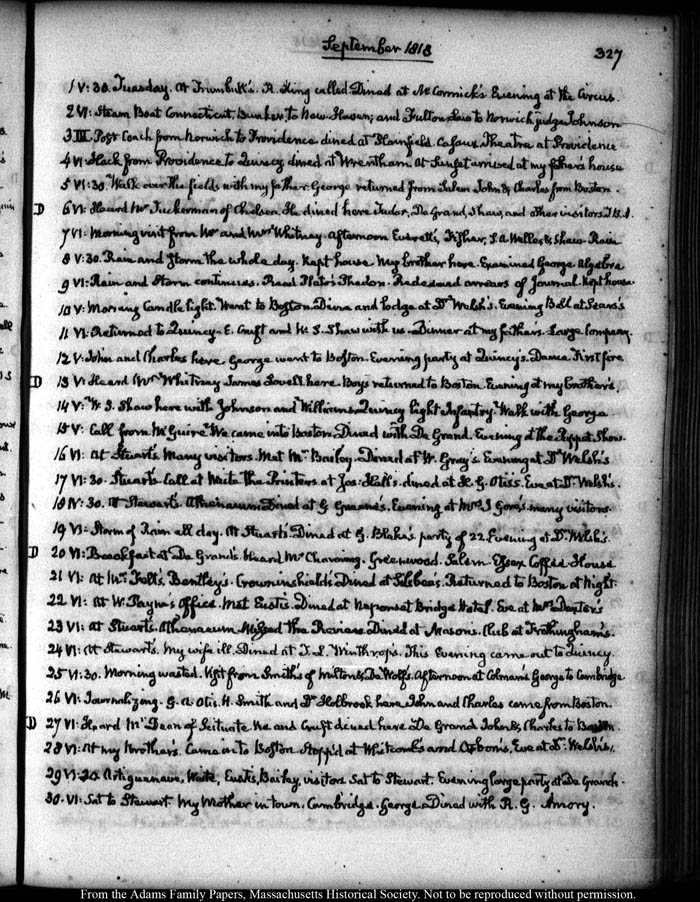 September 1818
327
1 V:30. Tuesday. At Trumbull's. R. King called Dined at McCormick's Evening at the Circus.
2 VI: Steam Boat Connecticut, Bunker, to New Haven; and Fulton, Law to Norwich judge Johnson
3 III. Post Coach from Norwich to Providence dined at Plainfield. Theatre at Providence
4 VI Hack from Providence to Quincy dined at Wrentham. At Sunset arrived at my father's house
5 VI:30. Walk over the fields with my father. George returned from Salem John & Charles from Boston.
D 6 VI: Heard Mr Tuckerman of Chelsea. He dined here Tudor, De Grand, Shaw, and other visitors T.B.A.
7 VI: Morning visit from Mr and Mrs Whitney. Afternoon Everett's, Fisher, S A Welles, & Shaw. Rain
8 V:30. Rain and storm the whole day. Kept house My brother here. Examined George Algebra
9 VI: Rain and Storm continues. Read Plato's Phedon. Redeemed arrears of Journal. Kept house
10 V: Morning Candle light. Went to Boston. Dine and lodge at Dr Welsh's. Evening Ball at Sears's
11 VI. Returned to Quincy. E. Cruft and W. S. Shaw with us. Dinner at my father's. Large Company.
12 V: John and Charles here George went to Boston. Evening party at Quincy's. Dance. First fire
D 13 VI Heard Mr Whitney James Lovell here. Boys returned to Boston. Evening at my brother's.
14 V: W. S. Shaw here with Johnson and Williams. Quincy light Infantry. Walk with George
15 V: Call from McGuire We came into Boston. Dined with De Grand. Evening at the Puppet Show
16 VI: At Stuarts Many visitors. Met Mr Bailey. Dined at W. Gray's Evening at Dr Welsh's
17 VI:30. Stuart's. Call at Waite the Printers at Jos: Hall's. dined at H. G. Otis's. Eve at Dr Welsh's.
18 IV:30. At Stewart's. Athenaeum. Dined at G Greene's. Evening at Mrs J Gore's. many visitors
19 VI: Storm of Rain all day. At Stuart's. Dined at G. Blake's. party of 22. Evening at Dr Welsh's.
D 20 VI: Breakfast at De Grand's. Heard Mr Channing. Greenwood. Salem. Essex Coffee House
21 VI: At Mr Felt's, Bentley's. Crowninshield's Dined at Silsbee's. Returned to Boston at Night.
22 VI: At W. Payne's Office. Met Eustis. Dined at Neponset Bridge Hotel. Eve at Mrs Dexter's
23 VI: At Stuarts. Athenaeum. Missed the Review Dined at Mason's. Club at Frothingham's.
24 VI: At Stewarts. My wife ill. Dined at T. L. Winthrop's. This Evening came out to Quincy.
25 VI:30. Morning wasted. Visit from Smith's of Milton & De Wolf's. Afternoon at Colman's George to Cambridge
26 VI: Journalizing. G. A. Otis. H. Smith and Dr Holbrook here John and Charles came from Boston.
D 27 VI: Heard Mr Dean of Scituate. He and Cruft dined here De Grand John & Charles to Boston.
28 VI: At my brother's. Came in to Boston. Stopp'd at Whitcomb's and Osborn's, Eve at Dr Welsh's.
29 VI:30. Artiguenave, Waite, Eustis, Bailey, visitors Sat to Stewart. Evening large party at De Grand's.
30. VI: Sat to Stewart. My Mother in town. Cambridge. George. Dined with R. G. Amory.
From the Adams Family Papers, Massachusetts Historical Society. Not to be reproduced without permission.